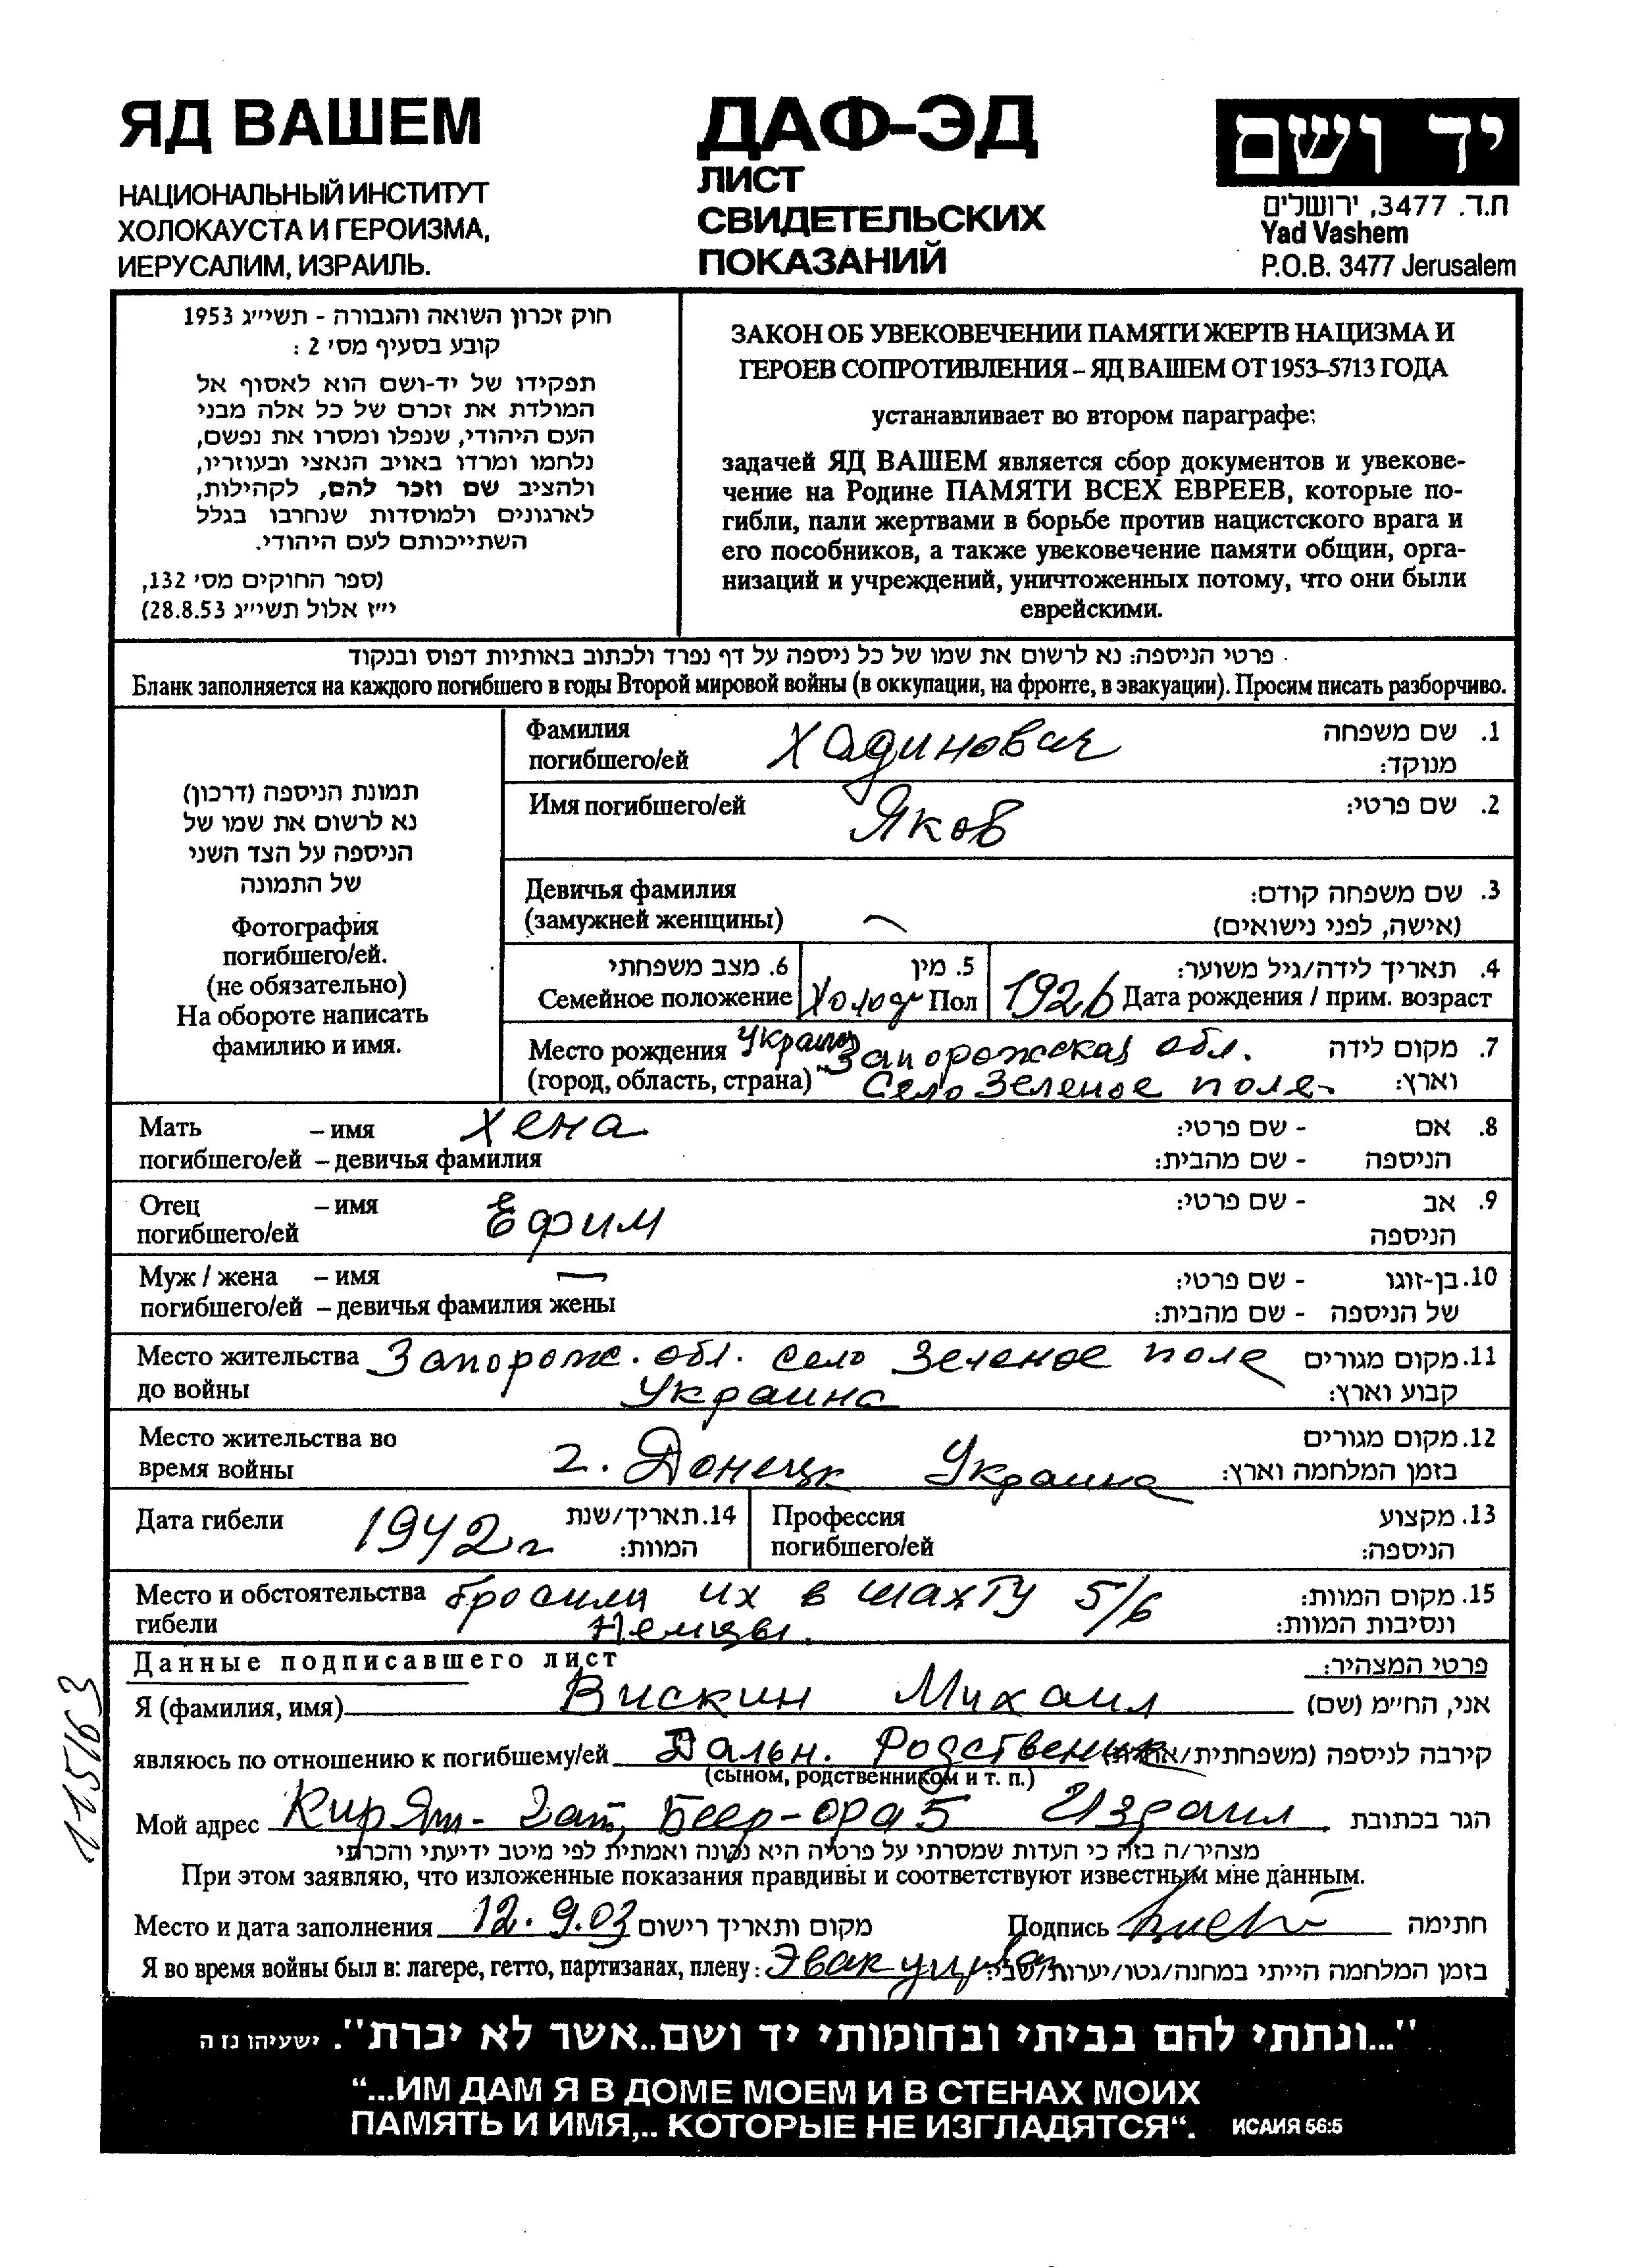 ЯД ВАШЕМ
НАЦИОНАЛЬНЫЙ ИНСТИТУТ
ХОЛОКАУСТА И ГЕРОИЗМА,
ИЕРУСАЛИМ, ИЗРАИЛЬ.
ДАФ-ЭД
ЛИСТ
СВИДЕТЕЛЬСКИХ
ПОКАЗАНИЙ
יד ושם
ת.ד. 3477, ירושלים
Yad Vashem
P.O.B. 3477 Jerusalem
חוק זכרון השואה והגבורה - תשי״ג 1953
קובע בסעיף מס׳ 2 :
תפקידו של יד-ושם הוא לאסוף אל
המולדת את זכרם של כל אלה מבני
העם היהודי, שנפלו ומסרו את נפשם,
נלחמו ומרדו באויב הנאצי ובעוזריו,
ולהציב שם וזכר להם, לקהילות,
לארגונים ולמוסדות שנחרבו בגלל
השתייכותם לעם היהודי.
(ספר החוקים מס׳ 132,
י״ז אלול תשי״ג 28.8.53)
ЗАКОН ОБ УВЕКОВЕЧЕНИИ ПАМЯТИ ЖЕРТВ НАЦИЗМА И
ГЕРОЕВ СОПРОТИВЛЕНИЯ – ЯД ВАШЕМ ОТ 1953-5713 ГОДА
устанавливает во втором параграфе:
задачей ЯД ВАШЕМ является сбор документов и увекове-
чение на Родине ПАМЯТИ ВСЕХ ЕВРЕЕВ, которые по-
гибли, пали жертвами в борьбе против нацистского врага и
его пособников, а также увековечение памяти общин, орга-
низаций и учреждений, уничтоженных потому, что они были
еврейскими.
פרטי הניספה: נא לרשום את שמו של כל ניספה על דף נפרד ולכתוב באותיות דפוס ובנקוד
Бланк заполняется на каждого погибшего в годы Второй мировой войны (в оккупации, на фронте, в эвакуации). Просим писать разборчиво.
תמונת הניספה (דרכון)
נא לרשום את שמו של
הניספה על הצד השני
של התמונה
Фотография
погибшего/ей.
(не обязательно)
На обороте написать
фамилию и имя.
Фамилия Хадинович 1. שם משפחה
погибшего/ей מנוקד:
Имя погибшего/ей Яков 2. שם פרטי:
Девичья фамилия 3. שם משפחה קודם:
(замужней женщины) — (אישה, לפני נישואים)
6. מצב משפחתי 5. מין 4. תאריך לידה/גיל משוער:
Семейное положение Холост Пол 1926 Дата рождения / прим. возраст
Место рождения Украина Запорожская обл. 7. מקום לידה
(город, область, страна) Село Зеленое поле- וארץ:
Мать – имя Хена 8. אם - שם פרטי:
погибшего/ей – девичья фамилия הניספה - שם מהבית:
Отец – имя Ефим 9. אב - שם פרטי:
погибшего/ей הניספה
Муж / жена – имя — 10. בן-זוגו - שם פרטי:
погибшего/ей – девичья фамилия жены של הניספה - שם מהבית:
Место жительства Запорож. обл. село Зеленое поле 11. מקום מגורים
до войны Украина קבוע וארץ:
Место жительства во 12. מקום מגורים
время войны г. Донецк Украина בזמן המלחמה וארץ:
Дата гибели 1942г 14. תאריך/שנת המוות:
Профессия 13. מקצוע
погибшего/ей הניספה:
Место и обстоятельства бросили их в шахту 5/6 15. מקום המוות:
гибели Немцы. ונסיבות המוות:
Данные подписавшего лист פרטי המצהיר:
Я (фамилия, имя) Вискин Михаил אני, הח״מ (שם)
являюсь по отношению к погибшему/ей Дальн. Родственик קירבה לניספה (משפחתית/אחרת)
(сыном, родственником и т. п.)
Мой адрес Кирят-Гат, Беер-ора 5 Израил הגר בכתובת
מצהיר/ה בזה כי העדות שמסרתי על פרטיה היא נכונה ואמתית לפי מיטב ידיעתי והכרתי
При этом заявляю, что изложенные показания правдивы и соответствуют известным мне данным.
Место и дата заполнения 12.9.03 מקום ותאריך רישום Подпись חתימה
Я во время войны был в: лагере, гетто, партизанах, плену: בזמן המלחמה הייתי במחנה/גטו/יערות/שבי:
115163
"...ונתתי להם בביתי ובחומותי יד ושם..אשר לא יכרת". ישעיהו נז ה
“...ИМ ДАМ Я В ДОМЕ МОЕМ И В СТЕНАХ МОИХ
ПАМЯТЬ И ИМЯ,.. КОТОРЫЕ НЕ ИЗГЛАДЯТСЯ“. ИСАИЯ 56:5